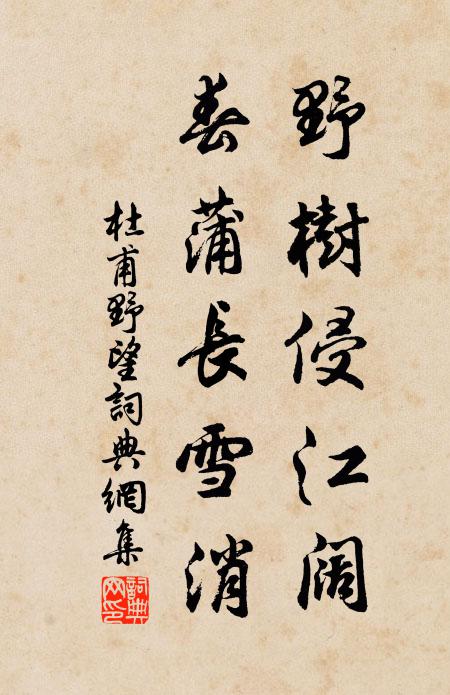 野樹侵江闊
春蒲長雪消
杜甫野望詞典網集
詞典網印